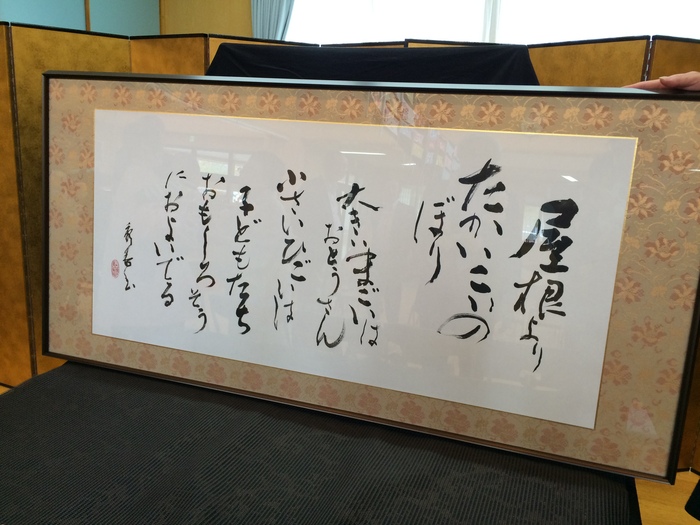 屋根より
たかいこいの
ぼり
大きいまごいは
おとうさん
小さいひごいは
子どもたち
おもしろそう
におよいでる